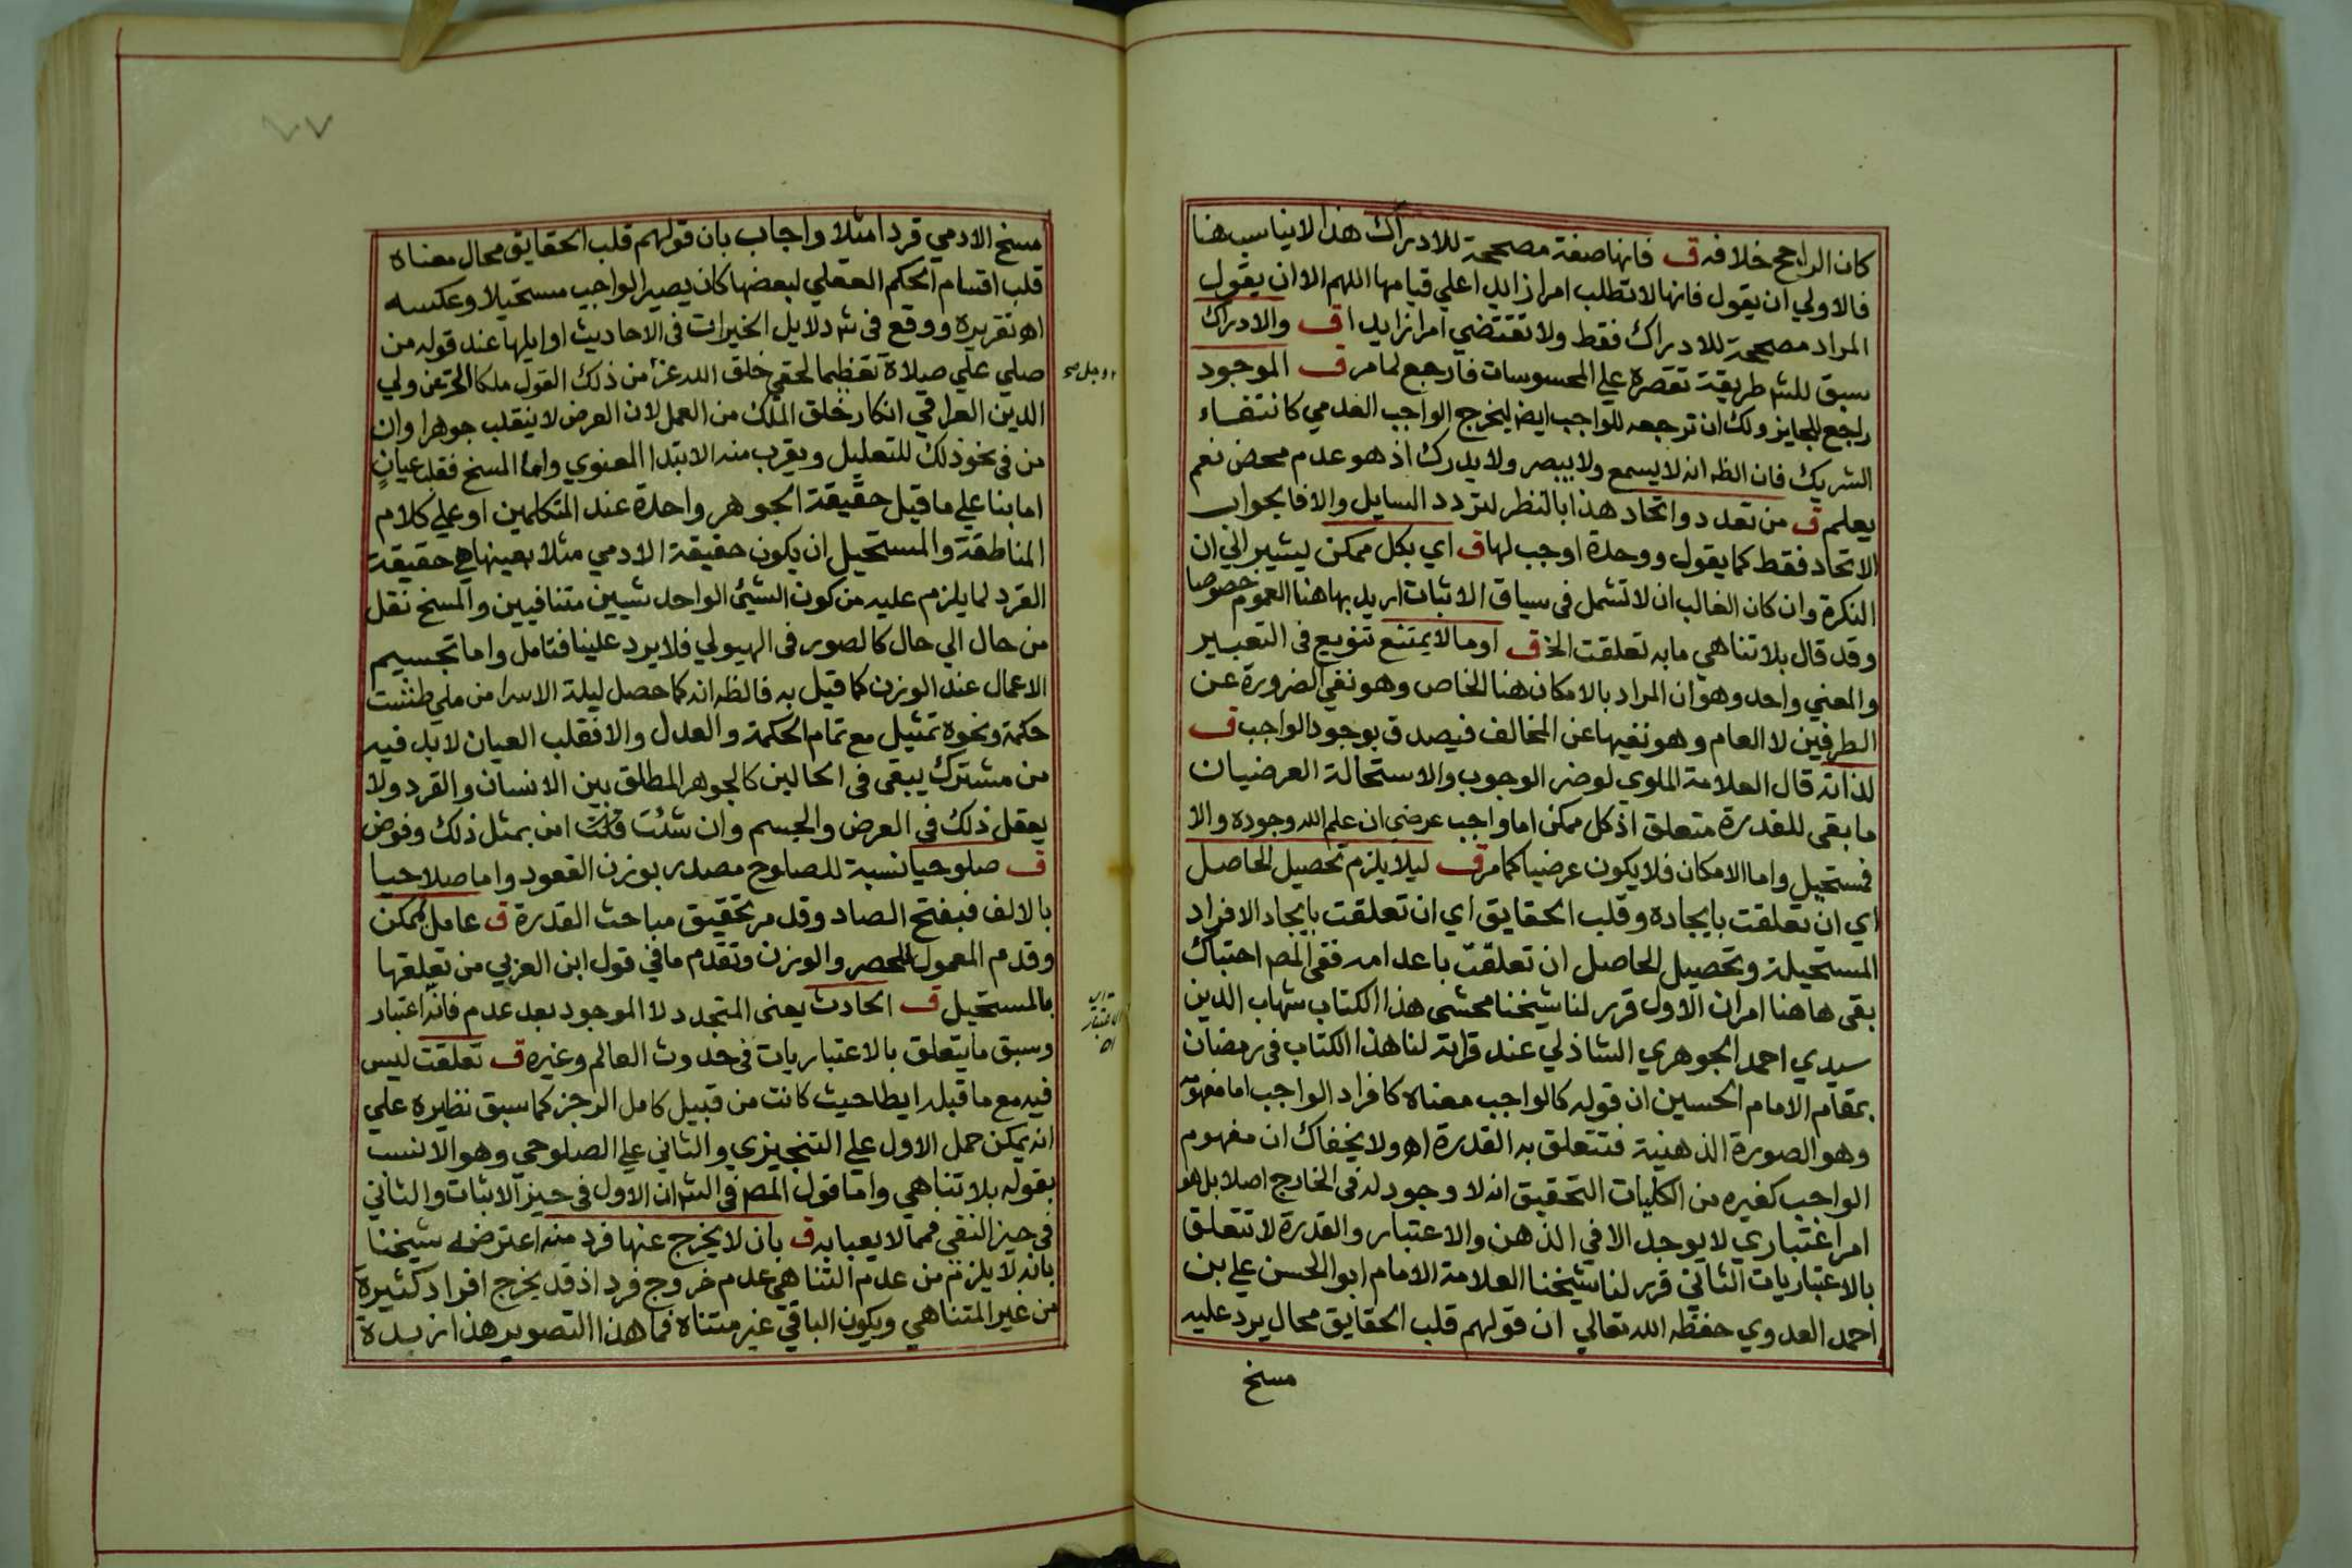 كان الراجح خلافه ق فانها صفة مصححة للادراك هذا لا يناسب هنا
فالاولي ان يقول فانها لا تطلب امرا زايدا علي قيامها اللهم الا ان يقول
المراد مصححة للادراك فقط ولا تقتضي امرا زايدا ق والادراك
سبق للش طريقة تقصره علي المحسوسات فارجع لما مر ق الموجود
راجع للجايز ولك ان ترجعه للواجب ايض ليخرج الواجب العدمي كانتفاء
الشريك فان الظ انه لا يسمع ولا يبصر ولا يدرك اذ هو عدم محض نعم
يعلم ق من تعدد واتحاد هذا بالنظر لتردد السايل والا فالجواب
الاتحاد فقط كما يقول ووحدة اوجب لها ق اي بكل ممكن يشير الي ان
النكرة وان كان الغالب ان لا تشمل في سياق الاثبات اريد بها هنا العموم خصوصا
وقد قال بلا تناهي ما به تعلقت الخ ق اوما لا يمتنع تنويع في التعبير
والمعني واحد وهو ان المراد بالامكان هنا الخاص وهو نفي الضرورة عن
الطرفين لا العام وهو نفيها عن المخالف فيصدق بوجود الواجب ق
لذاته قال العلامة الملوي لو ضر الوجوب والاستحالة العرضيان
ما بقي للقدرة متعلق اذ كل ممكن اما واجب عرضي ان علم الله وجوده والا
فمستحيل واما الامكان فلا يكون عرضيا كما مر ق ليلا يلزم تحصيل الحاصل
اي ان تعلقت بايجاده وقلب الحقايق اي ان تعلقت بايجاد الافراد
المستحيلة وتحصيل الحاصل ان تعلقت باعدامه ففي المص احتباك
بقي هاهنا امران الاول قرر لنا شيخنا محشي هذا الكتاب شهاب الدين
سيدي احمد الجوهري الشاذلي عند قراته لنا هذا الكتاب في رمضان
بمقام الامام الحسين ان قوله كالواجب معناه كافراد الواجب اما مفهومه
وهو الصورة الذهنية فتتعلق به القدرة اه ولا يخفاك ان مفهوم
الواجب كغيره من الكليات التحقيق انه لا وجود له في الخارج اصلا بل هو
امر اعتباري لا يوجد الا في الذهن والاعتبار والقدرة لا تتعلق
بالاعتباريات الثاني قرر لنا شيخنا العلامة الامام ابو الحسن علي بن
احمد العدوي حفظه الله تعالي ان قولهم قلب الحقايق محال يرد عليه
مسخ
٧٧
مسخ الادمي قردا مثلا واجاب بان قولهم قلب الحقايق محال معناه
قلب اقسام الحكم العقلي لبعضها كان يصير الواجب مستحيلا وعكسه
اه تقريره ووقع في ش دلايل الخيرات في الاحاديث اوايلها عند قوله من
صلي علي صلاة تعظيما لحقي خلق الله عز من ذلك القول ملكا الخ عن ولي
وجل صح
الدين العراقي انكار خلق الملك من العمل لان العرض لا ينقلب جوهرا وان
من في نحو ذلك للتعليل ويقرب منه الابتدا المعنوي واما المسخ فقلب عيان
اما بنا علي ما قيل حقيقة الجوهر واحدة عند المتكلمين او علي كلام
المناطقة والمستحيل ان يكون حقيقة الادمي مثلا بعينها هي حقيقة
القرد لما يلزم عليه من كون الشئ الواحد شيين متنافيين والمسخ نقل
من حال الي حال كالصور في الهيولي فلا يرد علينا فتامل واما تجسيم
الاعمال عند الوزن كما قيل به فالظ انه كما حصل ليلة الاسرا من ملي طشت
حكمة ونحوه تمثيل مع تمام الحكمة والعدل والانقلب العيان لا بد فيه
من مشترك يبقي في الحالين كالجوهر المطلق بين الانسان والقرد ولا
يعقل ذلك في العرض والجسم وان شئت قلت امن بمثل ذلك وفوض
ق صلوحيا نسبة للصلوح مصدر بوزن القعود واما صلاحيا
بالالف فبفتح الصاد وقد مر تحقيق مباحث القدرة ق عامل بممكن
وقدم المعمول للحصر والوزن وتقدم ما في قول ابن العربي من تعلقها
بالمستحيل ق الحادث يعني المتجدد لا الموجود بعد عدم فانه اعتبار
وسبق ما يتعلق بالاعتباريات في حدوث العالم وغيره ق تعلقت ليس
فيه مع ما قبله ايطا حيث كانت من قبيل كامل الرجز كما سبق نظيره علي
انه يمكن حمل الاول علي التنجيزي والثاني علي الصلوحي وهو الانسب
بقوله بلا تناهي واما قول المص في الش ان الاول في حيز الاثبات والثاني
في حيز النفي فمما لا يعبا به ق بان لا يخرج عنها فرد منه اعترضه شيخنا
بانه لا يلزم من عدم التناهي عدم خروج فرد اذ قد يخرج افراد كثيرة
من غير المتناهي ويكون الباقي غير متناه فما هذا التصوير هذا زبدة